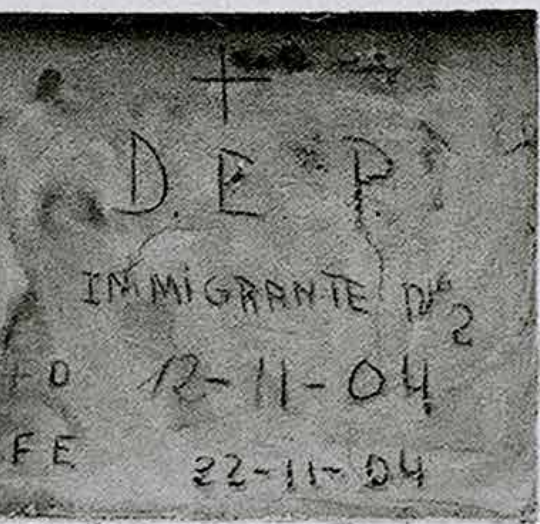 D. E. P.
IMMIGRANTE Nº 2
FD 12-11-04
FE 22-11-04